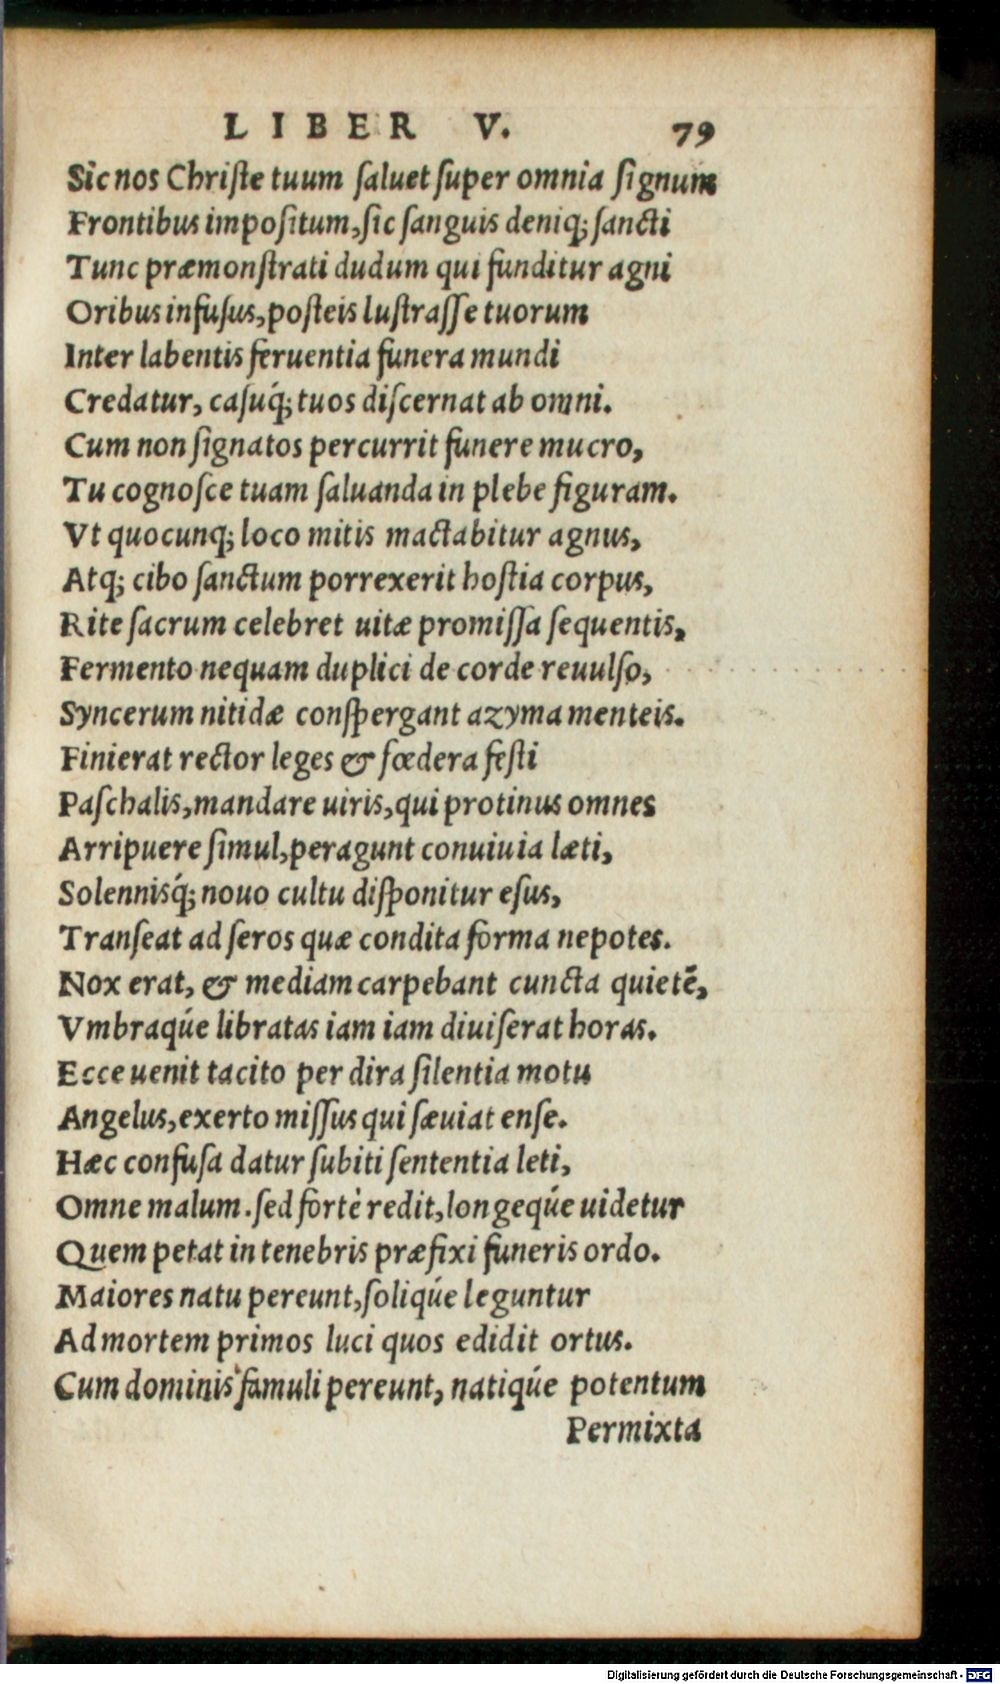 LIBER V. 79
Sic nos Christe tuum saluet super omnia signum
Frontibus impositum, sic sanguis deniq; sancti
Tunc præmonstrati dudum qui funditur agni
Oribus infusus, posteis lustrasse tuorum
Inter labentis feruentia funera mundi
Credatur, casuq́; tuos discernat ab omni.
Cum non signatos percurrit funere mucro,
Tu cognosce tuam saluanda in plebe figuram.
Vt quocunq; loco mitis mactabitur agnus,
Atq; cibo sanctum porrexerit hostia corpus,
Rite sacrum celebret uitæ promissa sequentis,
Fermento nequam duplici de corde reuulso,
Syncerum nitidæ conspergant azyma menteis.
Finierat rector leges & fœdera festi
Paschalis, mandare uiris, qui protinus omnes
Arripuere simul, peragunt conuiuia læti,
Solennisq́; nouo cultu disponitur esus,
Transeat ad seros quæ condita forma nepotes.
Nox erat, & mediam carpebant cuncta quietē,
Vmbraq́ue libratas iam iam diuiserat horas.
Ecce uenit tacito per dira silentia motu
Angelus, exerto missus qui sæuiat ense.
Hæc confusa datur subiti sententia leti,
Omne malum. sed fortè redit, longeq́ue uidetur
Quem petat in tenebris præfixi funeris ordo.
Maiores natu pereunt, soliq́ue leguntur
Ad mortem primos luci quos edidit ortus.
Cum dominis famuli pereunt, natiq́ue potentum
Permixta
Digitalisierung gefördert durch die Deutsche Forschungsgemeinschaft - DFG